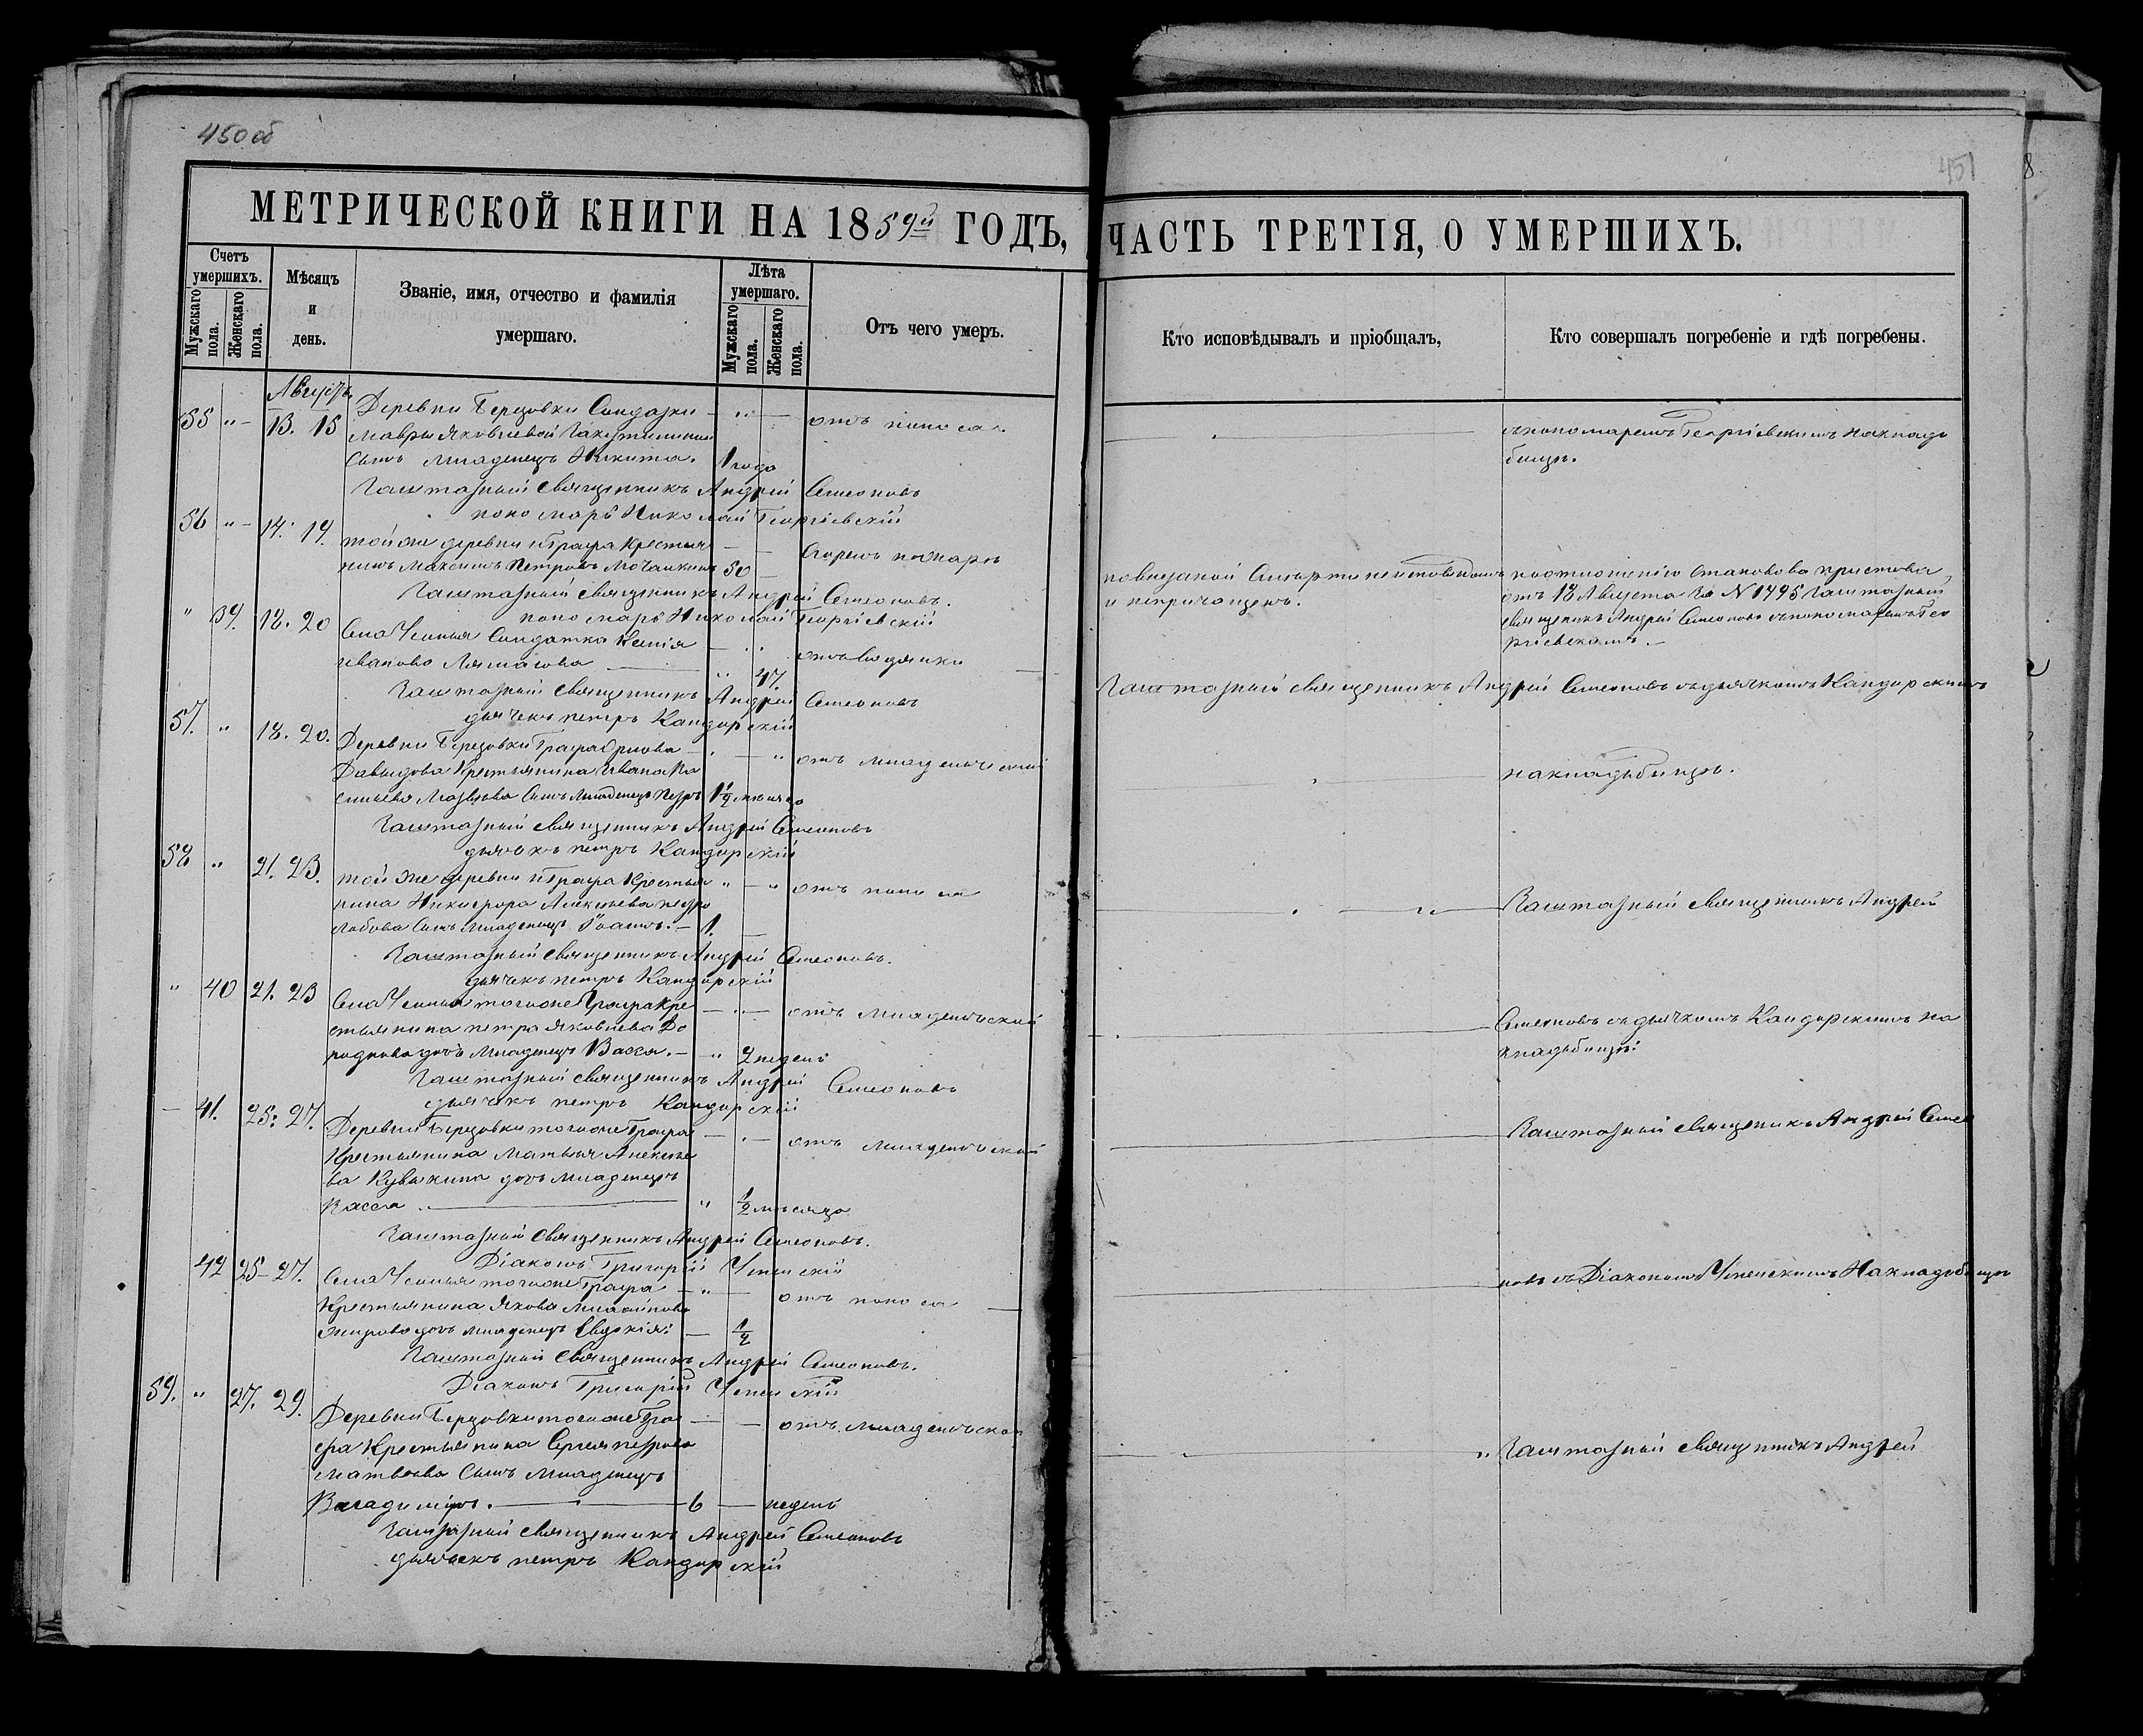 450 об
451
8
МЕТРИЧЕСКОЙ КНИГИ НА 1859й ГОДЪ,
ЧАСТЬ ТРЕТІЯ, О УМЕРШИХЪ.
Счетъ умершихъ.
Мужскаго пола.
Женскаго пола.
Мѣсяцъ и день.
Званіе, имя, отчество и фамилія умершаго.
Лѣта умершаго.
Мужскаго пола.
Женскаго пола.
Отъ чего умеръ.
Кто исповѣдывалъ и пріобщалъ,
Кто совершалъ погребеніе и гдѣ погребены.
Августъ
55 " 13. 15 Деревни Березовки Солдатки отъ поноса.
Мавры Яковлевой
Сынъ младенецъ Никита. 1 года
съ пономаремъ Георгіевскимъ на клад
бищѣ.
Заштатный священникъ Андрей Симеоновъ
пономарь Николай Георгіевскій
56 " 14. 19. той же деревни Графа Крестья
нинъ Максимъ Петровъ 50 Сгорелъ
и непричащенъ.
по отношенію Становова Пристова,
отъ 18 Августа за N 1495 Заштатный
священникъ Андрей Симеоновъ съ пономаремъ Гео
ргіевскимъ.
Заштатный священникъ Андрей Симеоновъ.
пономарь Николай Георгіевскій
" 39. 18. 20 Села Солдатка Ксенія
Иванова 47. отъ водянки
Заштатный священникъ Андрей Симеоновъ съ дьячкомъ Кандорскимъ
Заштатный священникъ Андрей Симеоновъ
дьячекъ Петръ Кандорскій
57. " 18. 20. Деревни Березовки Графа Орлова
Давыдова Крестьянина Ивана Ва
сильева Сынъ младенецъ Петръ 1½ мѣсяца отъ младенческой
на кладьбищѣ.
Заштатный священникъ Андрей Симеоновъ
дьячекъ Петръ Кандорскій
58 " 21. 23. той же деревни Графа Крестья
нина Никифора Алексѣева
Сынъ младенецъ Іоаннъ. 1. отъ поноса
Заштатный священникъ Андрей
Заштатный священникъ Андрей Симеоновъ.
дьячекъ Петръ Кандорскій
" 40 21. 23 Села того же Графа Кре
стьянина Петра Яковлева
дочь младенецъ Васса. " 2 недель отъ младенческой
Симеоновъ съ дьячкомъ Кандорскимъ на
кладьбищѣ.
Заштатный священникъ Андрей Симеоновъ
дьячекъ Петръ Кандорскій
41. 25. 27. Деревни Березовки того же Графа
Крестьянина Матвѣя Алексѣе
ва дочь младенецъ
Васса " ½ мѣсяца отъ младенческой
Заштатный священникъ Андрей Симео
Заштатный священникъ Андрей Симеоновъ.
Діаконъ Григорій Успенскій
42 25. 27. Села того же Графа
Крестьянина Якова
дочь младенецъ Евдокія. ½ отъ поноса
новъ съ Діакономъ Успенскимъ На кладьбищѣ
Заштатный священникъ Андрей Симеоновъ.
Діаконъ Григорій Успенскій
59. " 27. 29. Деревни Березовки того же Гра
фа Крестьянина Сергея Петрова
Матвѣева Сынъ младенецъ
Владиміръ. 6 недель отъ младенческой
Заштатный священникъ Андрей
Заштатный священникъ Андрей Симеоновъ
дьячекъ Петръ Кандорскій